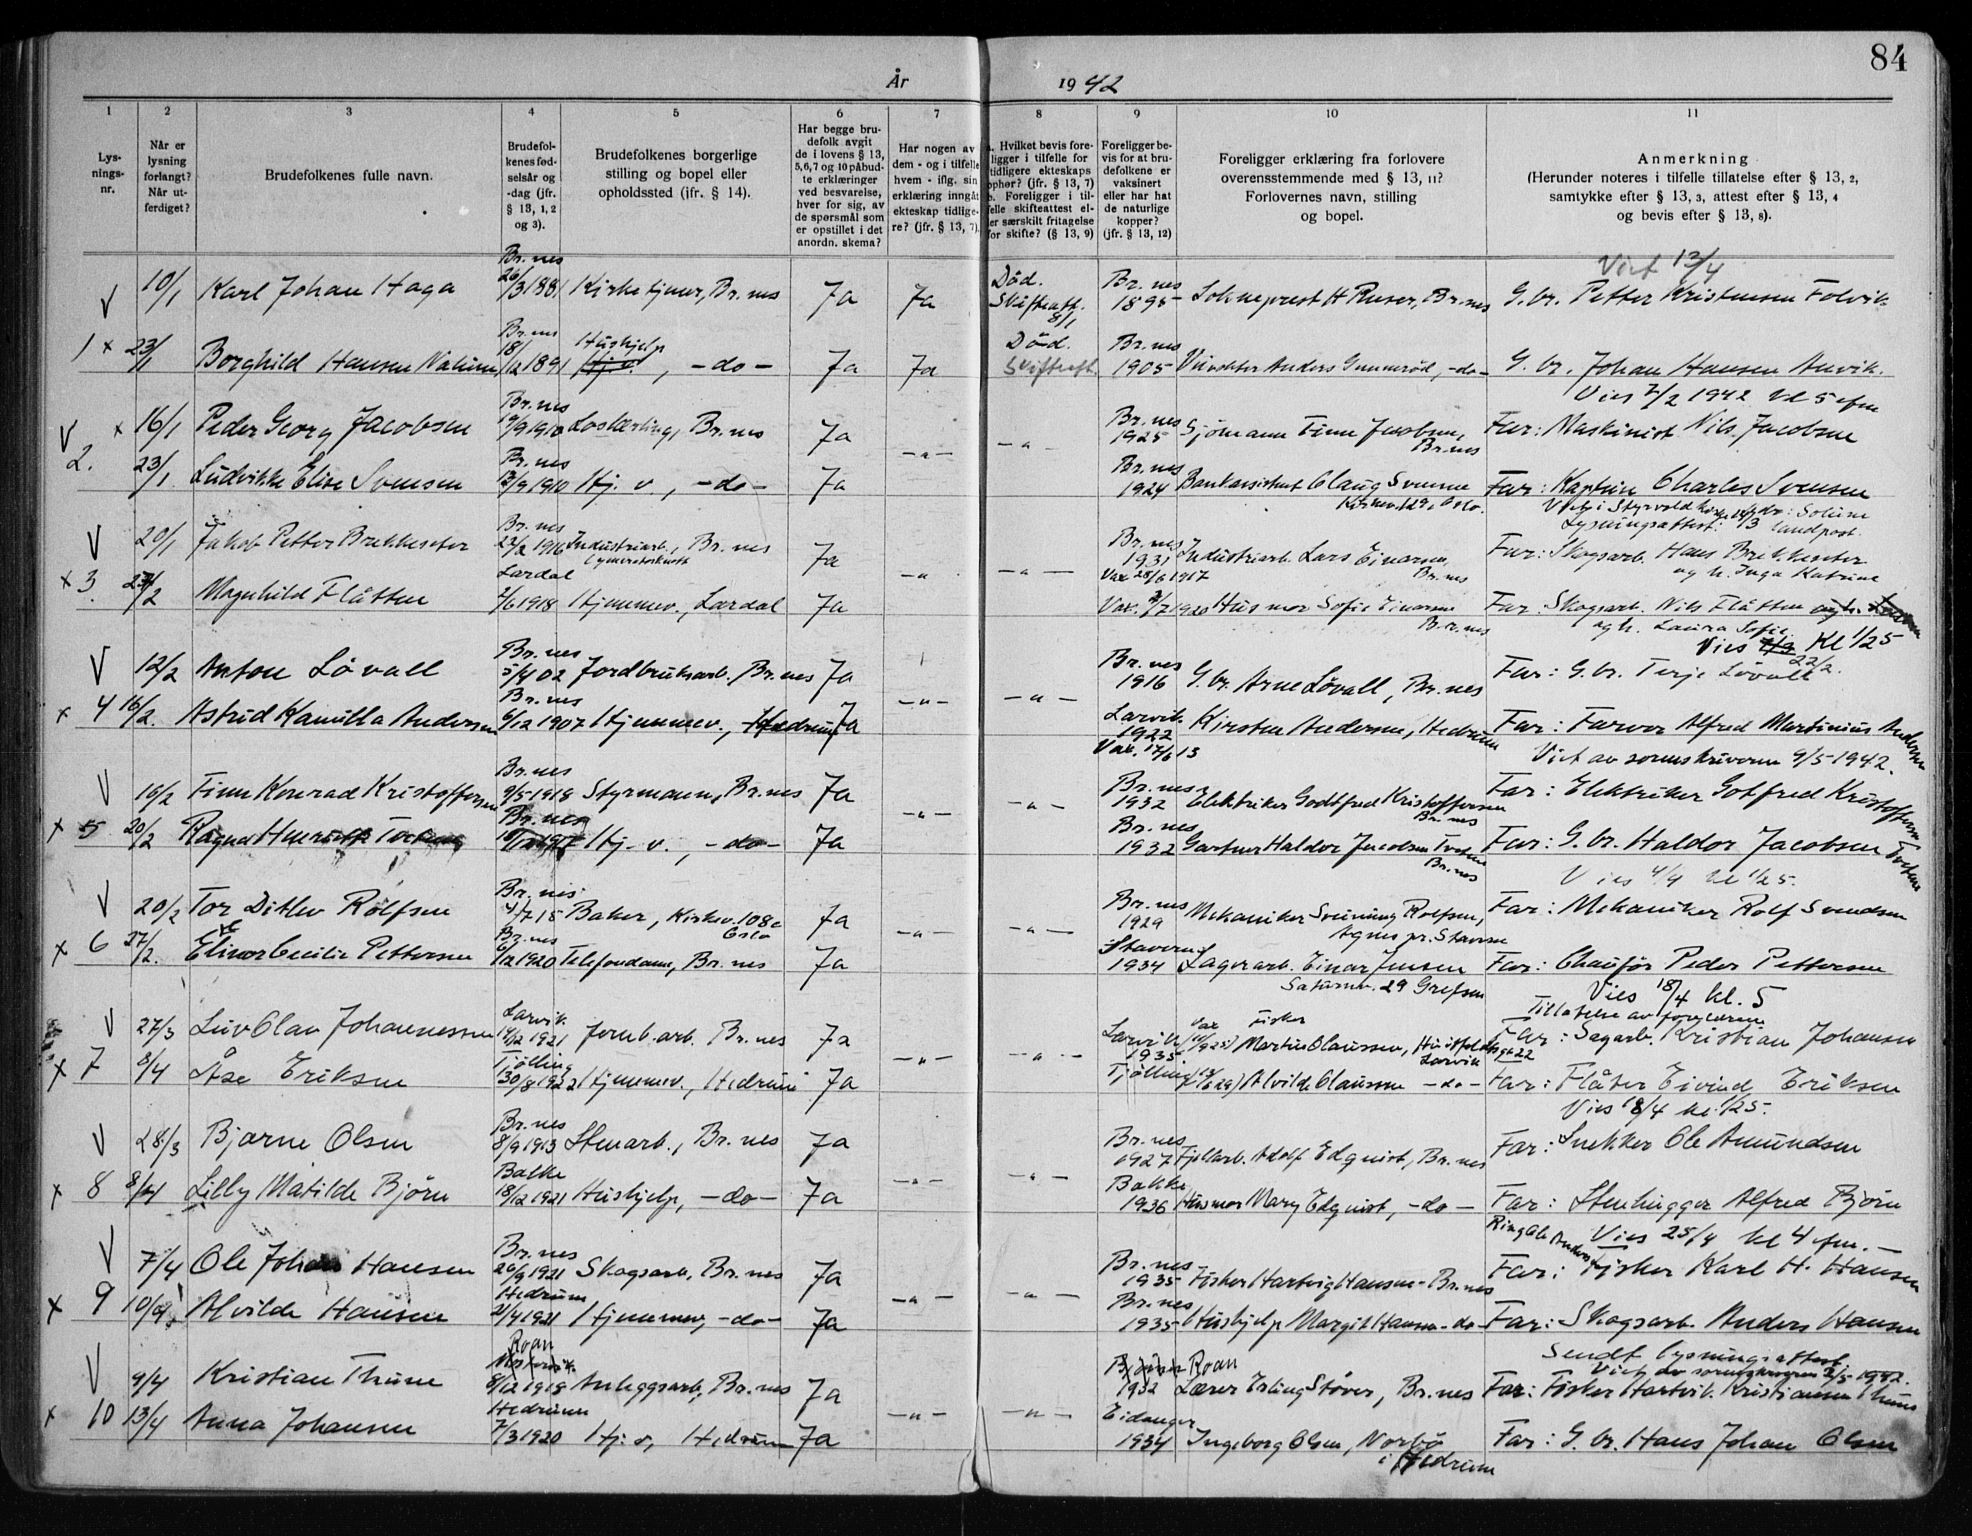 84
År 1942
1 2 3 4 5 6 7 8 9 10 11
Lys-
nings-
nr.
Når er
lysning
forlangt?
Når ut-
ferdiget?
Brudefolkenes fulle navn.
Brudefol-
kenes fød-
selsår og
-dag (jfr.
§ 13, 1, 2
og 3).
Brudefolkenes borgerlige
stilling og bopel eller
opholdssted (jfr. § 14).
Har begge bru-
defolk avgit
de i lovens § 13,
5, 6, 7 og 10 påbud-
te erklæringer
ved besvarelse,
hver for sig, av
de spørsmål som
er opstillet i det
anordn. skema?
Har nogen av
dem - og i tilfelle
hvem - iflg. sin
erklæring inngåt
ekteskap tidlige-
re? (jfr. § 13, 7).
a. Hvilket bevis fore-
ligger i tilfelle for
tidligere ekteskaps
ophør? (jfr. § 13, 7)
b. Foreligger i til-
felle skifteattest el-
ler særskilt fritagelse
for skifte? (§ 13, 9)
Foreligger be-
vis for at bru-
defolkene er
vaksinert
eller har hat
de naturlige
kopper?
(jfr. § 13, 12)
Foreligger erklæring fra forlovere
overensstemmende med § 13, 11?
Forlovernes navn, stilling
og bopel.
Anmerkning
(Herunder noteres i tilfelle tillatelse efter § 13, 2,
samtykke efter § 13, 3, attest efter § 13, 4
og bevis efter § 13, 8).
Br.nes Viet 13/4
V 10/1 Karl Johan Haga 26/3 1881 Kirketjener, Br.nes Ja Ja Død. Skifteatt. 8/1 Br.nes 1895 Sogneprest H Ruser, Br.nes G.br. Petter Kristensen Folvik
1 x 23/1 Borghild Hansen Br.nes 18/12 1891 Hushjelp Hj.v., -do- Ja Ja Død. Skifteatt. Br.nes 1905 Anders Gunnerød, -do- G.br. Johan Hansen Anvik.
Vies 7/2 1942 kl 5 efm
V x 16/1 Peder Georg Jacobsen Br.nes 19/9 1910 Br.nes Ja -"- -"- Br.nes 1925 Sjømann Finn Jacobsen, Br.nes Far: Maskinist Nils Jacobsen
2. 23/1 Ludvikke Elise Svensen Br.nes 9/9 1910 Hj. v., -do- Ja Br.nes 1924 Bankassistent Claug Svensen Oslo. Far: Kaptein Charles Svensen
Lysningsattest: landpost.
V 20/1 Jakob Petter Brekkeseter Br.nes 22/2 1916 Industriarb., Br.nes Ja Br.nes 1931 Industriarb. Lars Einarsen, Br.nes Far: Skogsarb. Hans Brekkeseter
og h. Inga Katrine
x 3. /2 Magnhild Flåtten Lardal 7/6 1918 Hjemmev., Lardal Ja -"- -"- Vax 28/6 1917 Vax. 2/7 1920 Husmor Sofie Einarsen Br.nes Far: Skogsarb. Nils Flåtten
og h. Laura Sofie
Vies Kl 1/2 5
22/2.
V 12/2 Anton Løvall Br.nes 5/4 02 Jordbruksarb., Br.nes Ja Br.nes 1916 G.br. Arne Løvall, Br.nes Far: G.br. Terje Løvall
x 4 16/2. Astrid Kamilla Andersen Br.nes 6/12 1907 Hjemmev., Hedrum Ja -"- -"- Larvik 1922 Vax. 17/6 13 Kirsten Andersen, Hedrum Far: Farver Alfred Martinius Andersen
Viet av sorenskriveren 9/5-1942.
V 16/2 Finn Konrad Kristoffersen Br.nes 9/5-1918 Styrmann, Br.nes Ja Br.nes 1932 Elektriker Godtfred Kristoffersen Br.nes Far: Elektriker Gotfred Kristoffersen
x 5 20/2 Ragna Henriette Br.nes Hj. v., -do- Ja -"- -"- Br.nes 1932 Gartner Haldor Jacobsen Tveten Br.nes Far: G.br. Haldor Jacobsen Tveten
Vies 4/4 kl 1/2 5.
V 20/2 Tor Ditlev Rolfsen Br.nes 4/7 15 Baker, Kirkev. 108c Oslo Ja Br.nes 1929 Mekaniker Sveinung Rolfsen, Agnes pr. Stavern Far: Mekaniker Rolf Svendsen
x 6 27/2. Elinor Cecilie Pettersen Br.nes 6/12 1920 Telefondame, Br.nes Ja -"- -"- Stavern 1934 Lagerarb. Einar Jensen Saturnv. 29 Grefsen Far: Chaufør Peder Pettersen
Vies 18/4 kl. 5
Tillatelse av foreldrene
V 27/3 Liv Olav Johannessen Larvik 14/2 1921 Jernb.arb. Br.nes Ja Larvik 1935 Fisker Martin Claussen, Larvik Far: Sagarb. Kristian Johansen
x 7 8/4 Åse Eriksen Tjølling 30/8 1922 Hjemmev., Hedrum Ja -"- -"- Tjølling Alvilde Claussen -do- Far: Fløter Eivind Eriksen
Vies 18/4 kl. 1/2 5.
V 28/3 Bjarne Olsen Br.nes 8/9 1913 Stenarb., Br.nes Ja Br.nes 1927 Fjellarb. Adolf Edquist, Br.nes Far: Snekker Ole Amundsen
x 8 8/4 Lilly Matilde Bjørn Bakke 18/12 1921 Hushjelp, -do- Ja -"- -"- Bakke 1936 Husmor Mary Edquist, -do- Far: Stenhugger Alfred Bjørn
Vies 25/4 kl 4 efm.
V 7/4 Ole Johan Hansen Br.nes 26/9 1921 Skogsarb, Br.nes Ja Br.nes 1935 Fisker Hartvig Hansen - Br.nes Far: Fisker Karl H. Hansen
x 9 10/4 Alvilde Hansen Hedrum 2/4 1921 Hjemmev, -do- Ja -"- -"- Br.nes 1935 Hushjelp Margit Hansen -do- Far: Skogsarb. Anders Hansen
Sendt lysningsattest.
Viet av sorenskriveren 2/5-1942.
V 9/4 Kristian Thune Roan 8/12 1918 Anleggsarb, Br.nes Ja Roan 1932 Lærer Erling Støver, Br.nes Far: Fisker Hartvik Kristiansen Thune
x 10 13/4 Anna Johansen Hedrum 7/3 1920 Hj. v, Hedrum Ja -"- -"- Eidanger 1934 Ingeborg Olsen, Norbø i Hedrum Far: G.br. Hans Johan Olsen